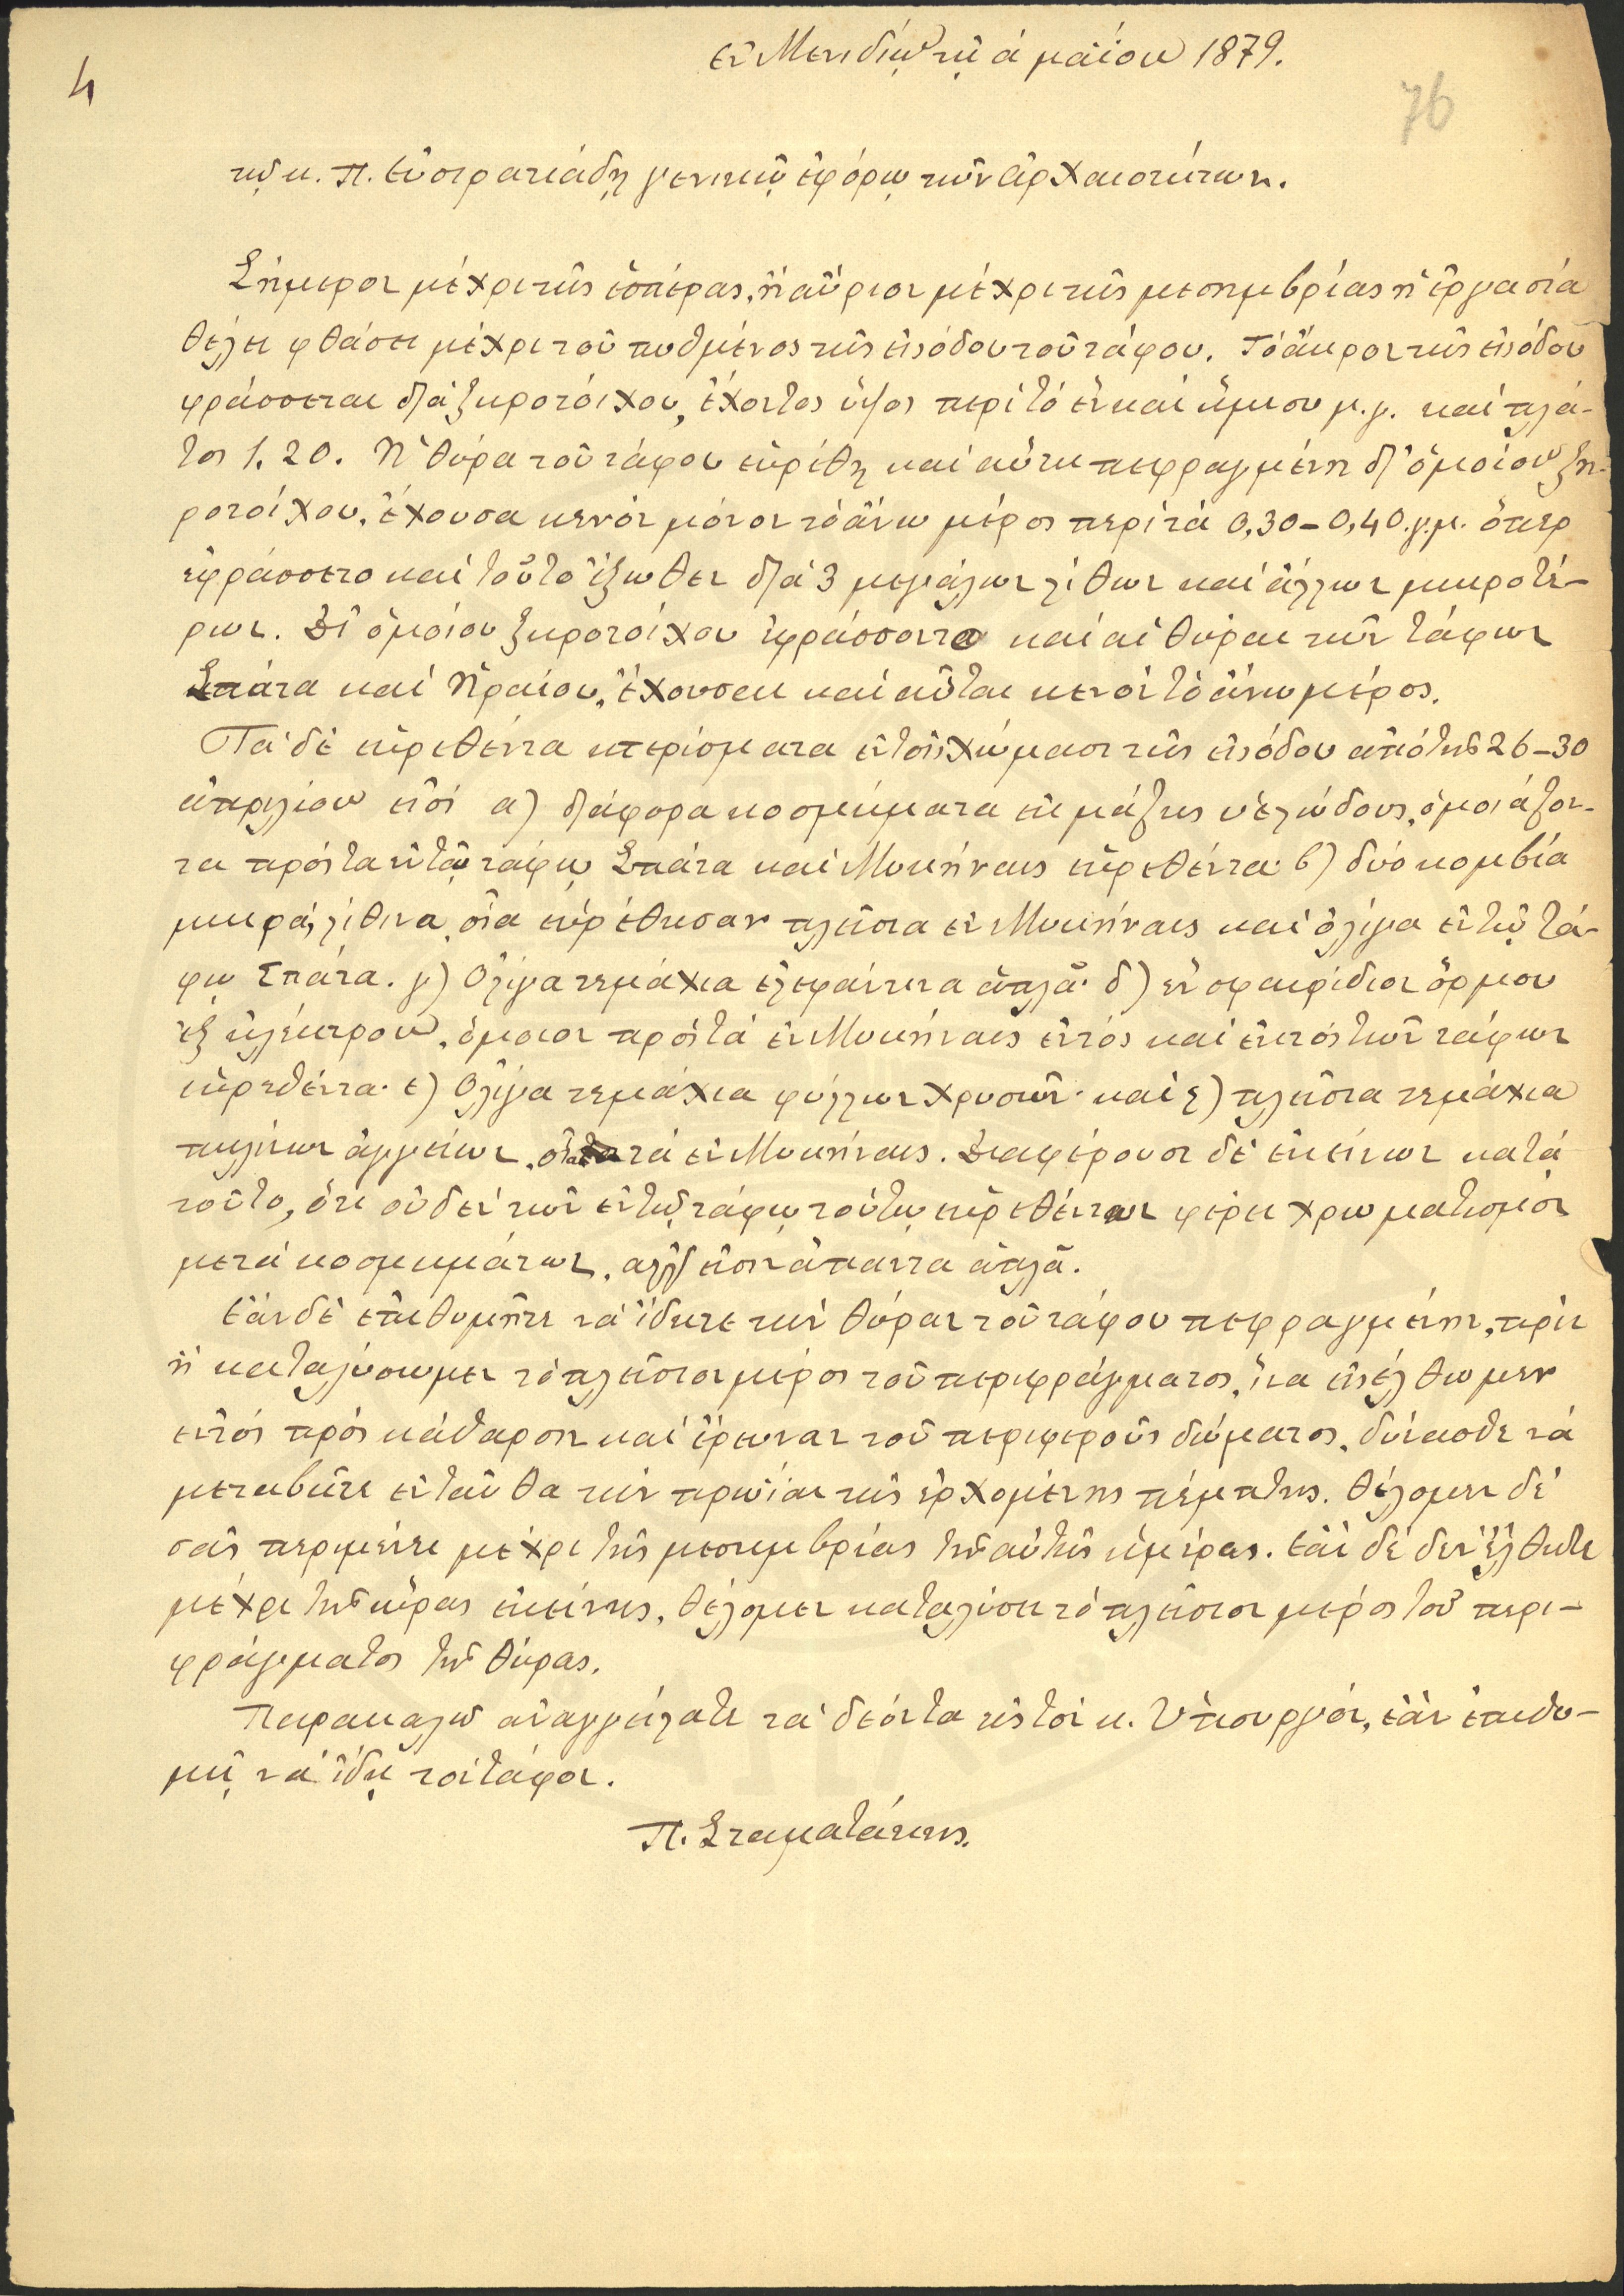 4
ἐν Μενιδίῳ τῇ ά μαΐου 1879.
76
τῷ κ. Π. Εὐστρατιάδῃ γενικῷ ἐφόρῳ τῶν ἀρχαιοτήτων.
Σήμερον μέχρι τῆς ἑσπέρας, ἢ αὔριον μέχρι τῆς μεσημβρίας ἡ ἐργασία
θέλει φθάσει μέχρι τοῦ πυθμένος τῆς εἰσόδου τοῦ τάφου. Τὸ ἄκρον τῆς εἰσόδου
φράσσεται διὰ ξηροτοίχου, ἔχοντος ὕψος περὶ τὸ ἓν καὶ ἥμισυ μ.γ. καὶ πλά-
τος 1.20. Ἡ θύρα τοῦ τάφου εὑρέθη καὶ αὕτη πεφραγμένη δι' ὁμοίου ξη-
ροτοίχου, ἔχουσα κενὸν μόνον τὸ ἄνω μέρος περὶ τὰ 0,30-0,40.γ.μ. ὅπερ
ἐφράσσετο καὶ τοῦτο ἔξωθεν διὰ 3 μεγάλων λίθων καὶ ἄλλων μικροτέ-
ρων. Δι' ὁμοίου ξηροτοίχου ἐφράσσοντο καὶ αἱ θύραι τῶν τάφων
Σπάτα καὶ Ἡραίου, ἔχουσαι καὶ αὗται κενὸν τὸ ἄνω μέρος.
Τὰ δὲ εὑρεθέντα κτερίσματα ἐν τοῖς χώμασι τῆς εἰσόδου ἀπὸ τῆς 26-30
ἀπριλίου εἰσὶ α) διάφορα κοσμήματα ἐκ μάζης ὑελώδους, ὁμοιάζον-
τα πρὸς τα ἐν τῷ τάφῳ Σπάτα καὶ Μυκήναις εὑρεθέντα· β) δύο κομβία
μικρά, λίθινα, οἷα εὑρέθησαν πλεῖστα ἐν Μυκήναις καὶ ὀλίγα ἐν τῷ τά-
φῳ Σπάτα. γ) Ὀλίγα τεμάχια ἐλεφάντινα ἁπλᾶ· δ) ἓν σφαιρίδιον ὅρμου
ἐξ ἠλέκτρου, ὅμοιον πρὸς τὰ ἐν Μυκήναις ἐντὸς καὶ ἐκτὸς τῶν τάφων
εὑρεθέντα· ε) Ὀλίγα τεμάχια φύλλων χρυσῶν· καὶ ς) πλεῖστα τεμάχια
πηλίνων ἀγγείων, οἷα τὰ ἐν Μυκήναις. Διαφέρουσι δὲ ἐκείνων κατὰ
τοῦτο, ὅτι οὐδὲν τῶν ἐν τῷ τάφῳ τούτῳ εὑρεθέντων φέρει χρωματισμὸν
μετὰ κοσμημάτων, ἀλλ' εἰσὶν ἅπαντα ἁπλᾶ.
Ἐὰν δὲ ἐπιθυμῆτε νὰ ἴδητε τὴν θύραν τοῦ τάφου πεφραγμένην, πρὶν
ἢ καταλύσωμεν τὸ πλεῖστον μέρος τοῦ περιφράγματος, ἵνα εἰσέλθωμεν
ἐντὸς πρὸς κάθαρσιν καὶ ἔρευναν τοῦ περιφεροῦς δώματος, δύνασθε νὰ
μεταβῆτε ἐνταῦθα τὴν πρωΐαν τῆς ἐρχομένης πέμπτης. Θέλομεν δὲ
σᾶς περιμείνει μέχρι τῆς μεσημβρίας τῆς αὐτῆς ἡμέρας. Ἐὰν δὲ δὲν ἔλθητε
μέχρι τῆς ὥρας ἐκείνης, θέλομεν καταλύσει τὸ πλεῖστον μέρος τοῦ περι-
φράγματος τῆς θύρας.
Παρακαλῶ ἀναγγείλατε τὰ δέοντα εἰς τὸν κ. Ὑπουργόν, ἐὰν ἐπιθυ-
μῇ νὰ ἴδῃ τὸν τάφον.
Π. Σταματάκης.